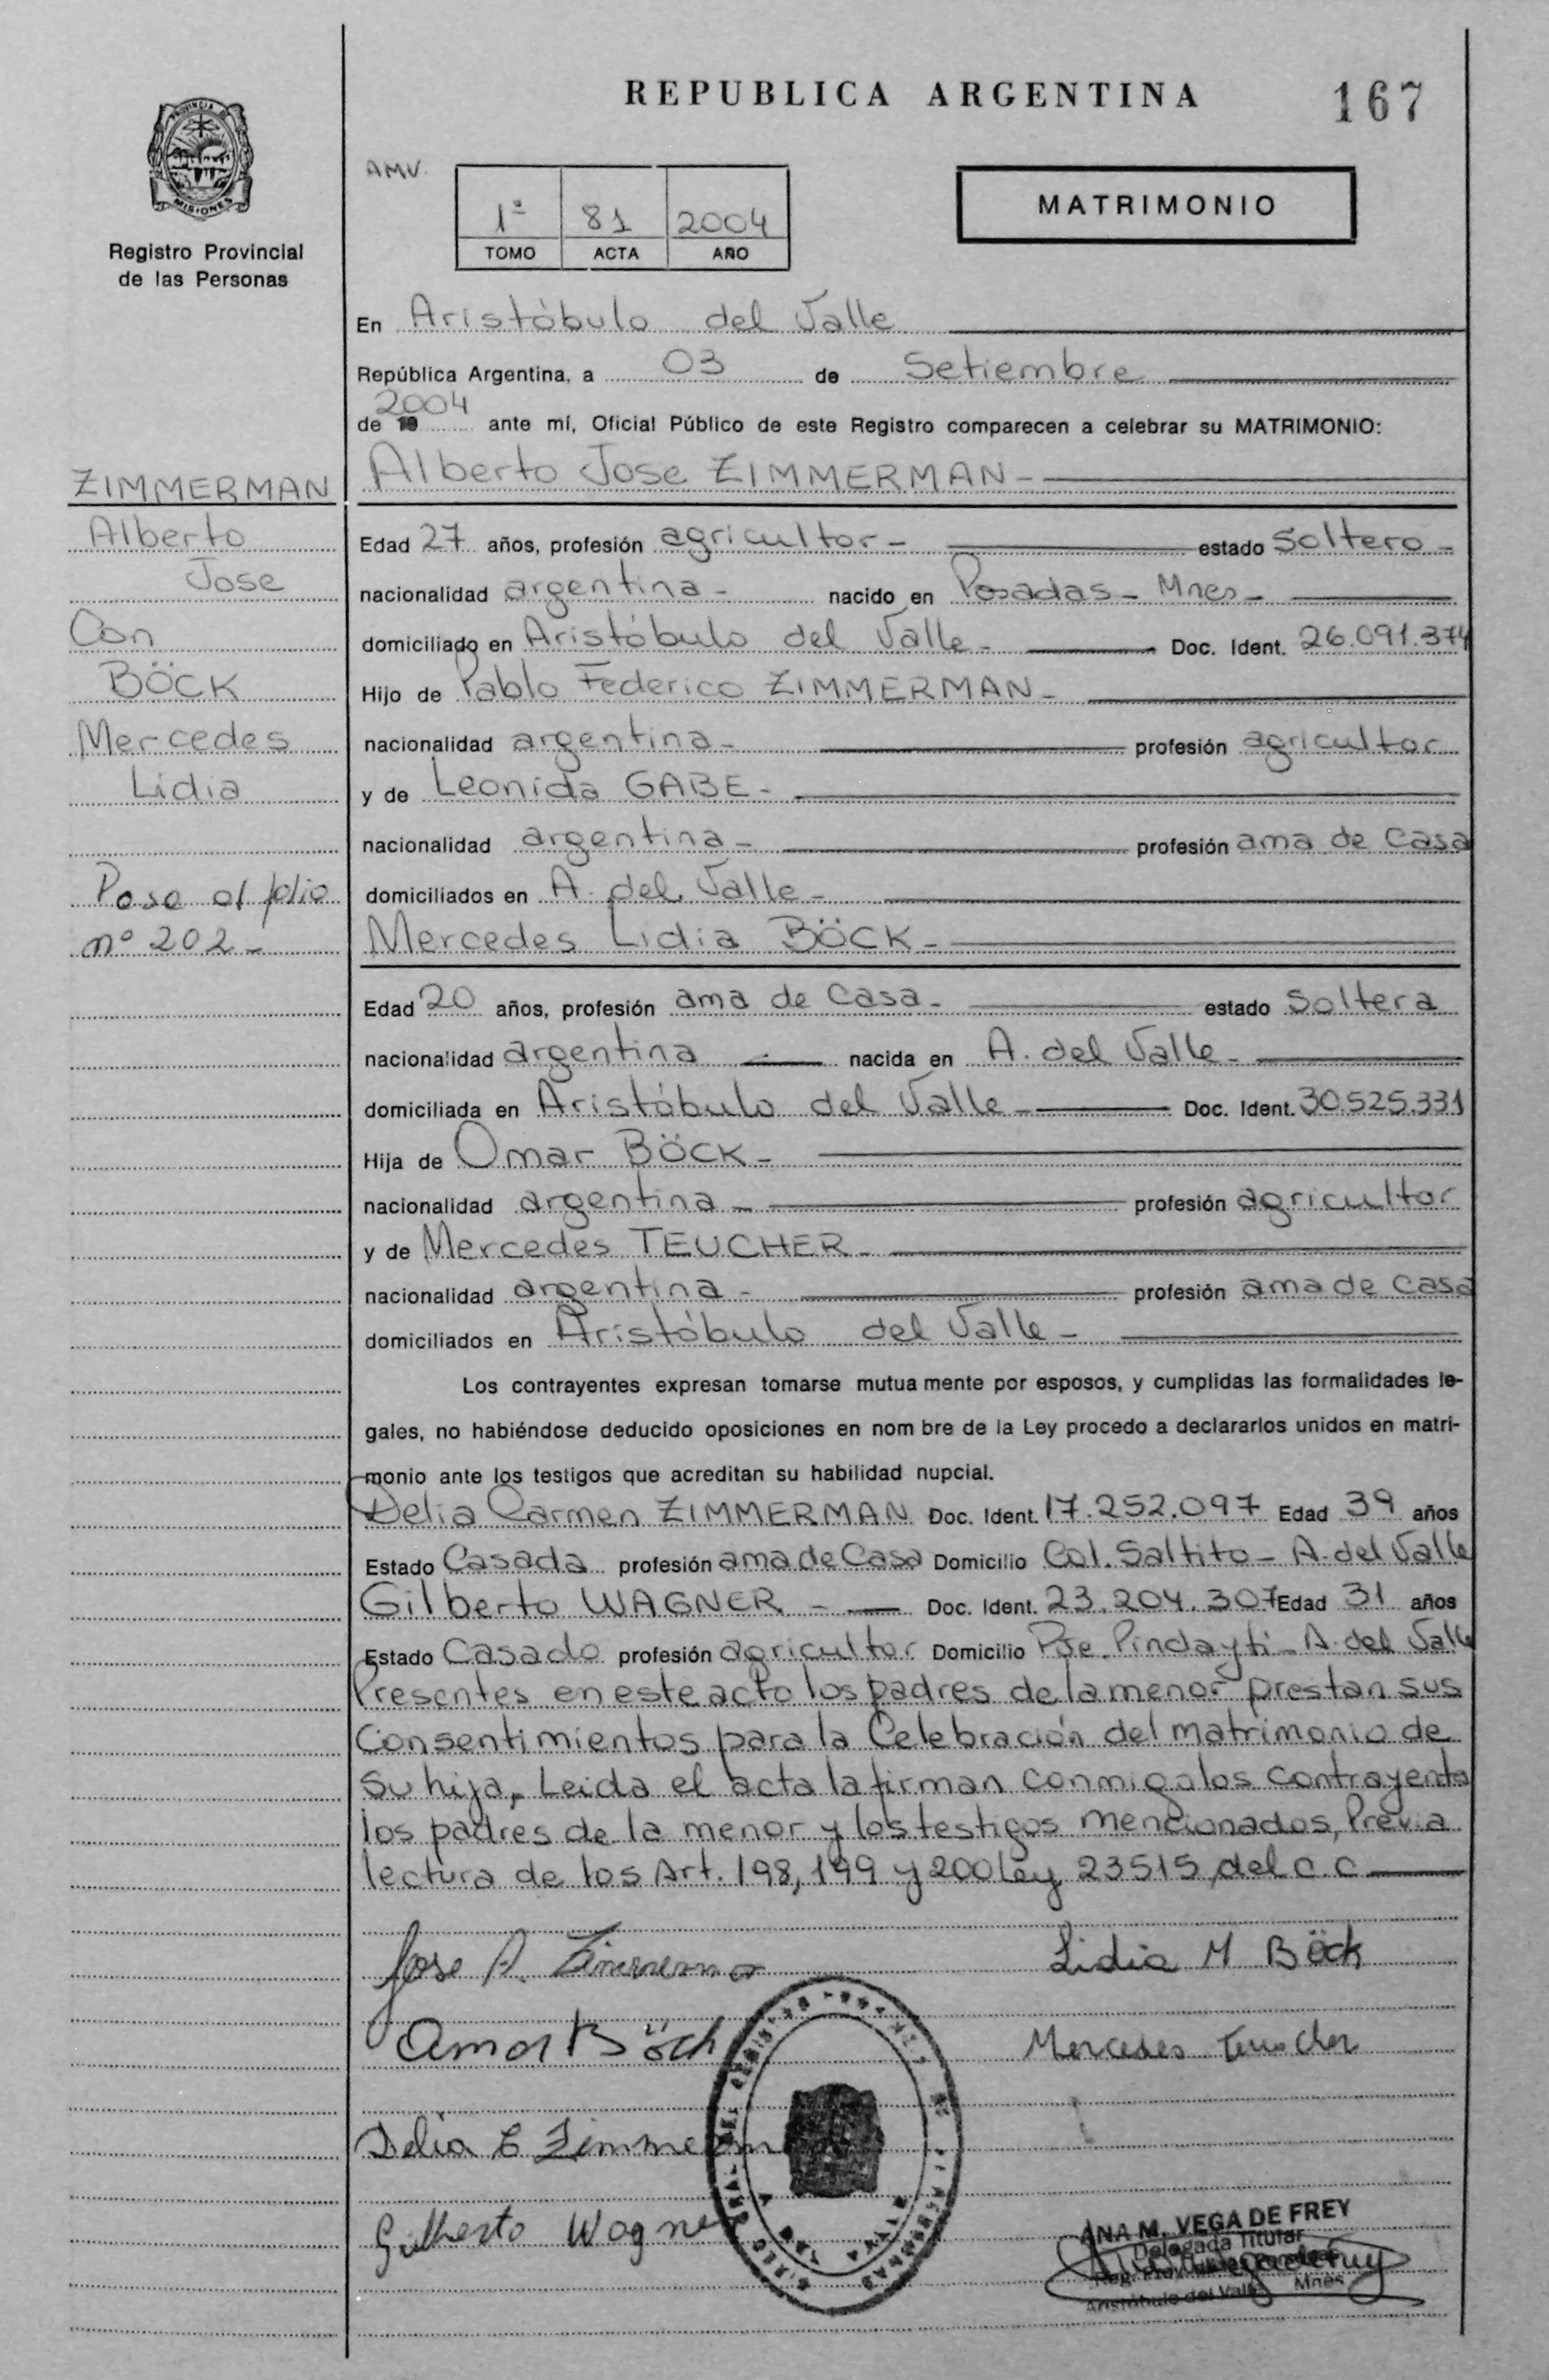 REPUBLICA ARGENTINA
167
PROVINCIA
MISIONES
Registro Provincial
de las Personas
AMV.
1º 81 2004
TOMO ACTA AÑO
MATRIMONIO
En Aristóbulo del Valle
República Argentina, a 03 de Setiembre
2004
de 19 ante mí, Oficial Público de este Registro comparecen a celebrar su MATRIMONIO:
Alberto Jose ZIMMERMAN-
ZIMMERMAN
Alberto
Jose
Con
BÖCK
Mercedes
Lidia
Pasa al folio
nº 202-
Edad 27 años, profesión agricultor- estado Soltero-
nacionalidad argentina- nacido en Posadas- Mnes-
domiciliado en Aristóbulo del Valle- Doc. Ident. 26.091.374
Hijo de Pablo Federico ZIMMERMAN-
nacionalidad argentina- profesión agricultor
y de Leonida GABE-
nacionalidad argentina- profesión ama de Casa
domiciliados en A. del Valle-
Mercedes Lidia BÖCK-
Edad 20 años, profesión ama de Casa- estado Soltera
nacionalidad argentina nacida en A. del Valle-
domiciliada en Aristóbulo del Valle- Doc. Ident. 30.525.331
Hija de Omar BÖCK-
nacionalidad argentina- profesión agricultor
y de Mercedes TEUCHER-
nacionalidad argentina- profesión ama de Casa
domiciliados en Aristóbulo del Valle-
Los contrayentes expresan tomarse mutua mente por esposos, y cumplidas las formalidades le-
gales, no habiéndose deducido oposiciones en nom bre de la Ley procedo a declararlos unidos en matri-
monio ante los testigos que acreditan su habilidad nupcial.
Delia Carmen ZIMMERMAN Doc. Ident. 17.252.097 Edad 39 años
Estado Casada profesión ama de Casa Domicilio Col. Saltito- A. del Valle
Gilberto WAGNER - Doc. Ident. 23.204.307 Edad 31 años
Estado Casado profesión agricultor Domicilio Pje. Pindayti- A. del Valle
Presentes en este acto los padres de la menor prestan sus
Consentimientos para la Celebración del matrimonio de
su hija, Leida el acta la firman conmigo los contrayents
los padres de la menor y los testigos mencionados, Previa
lectura de los Art. 198, 199 y 200 Ley 23515 del C.C.
Jose A. Zimmerman
Lidia M Böck
Omar Böck
Mercedes Teuscher
Delia C Zimmerman
Gilberto Wagner
ANA M. VEGA DE FREY
Delegada Titular
Aristóbulo del Valle Mnes